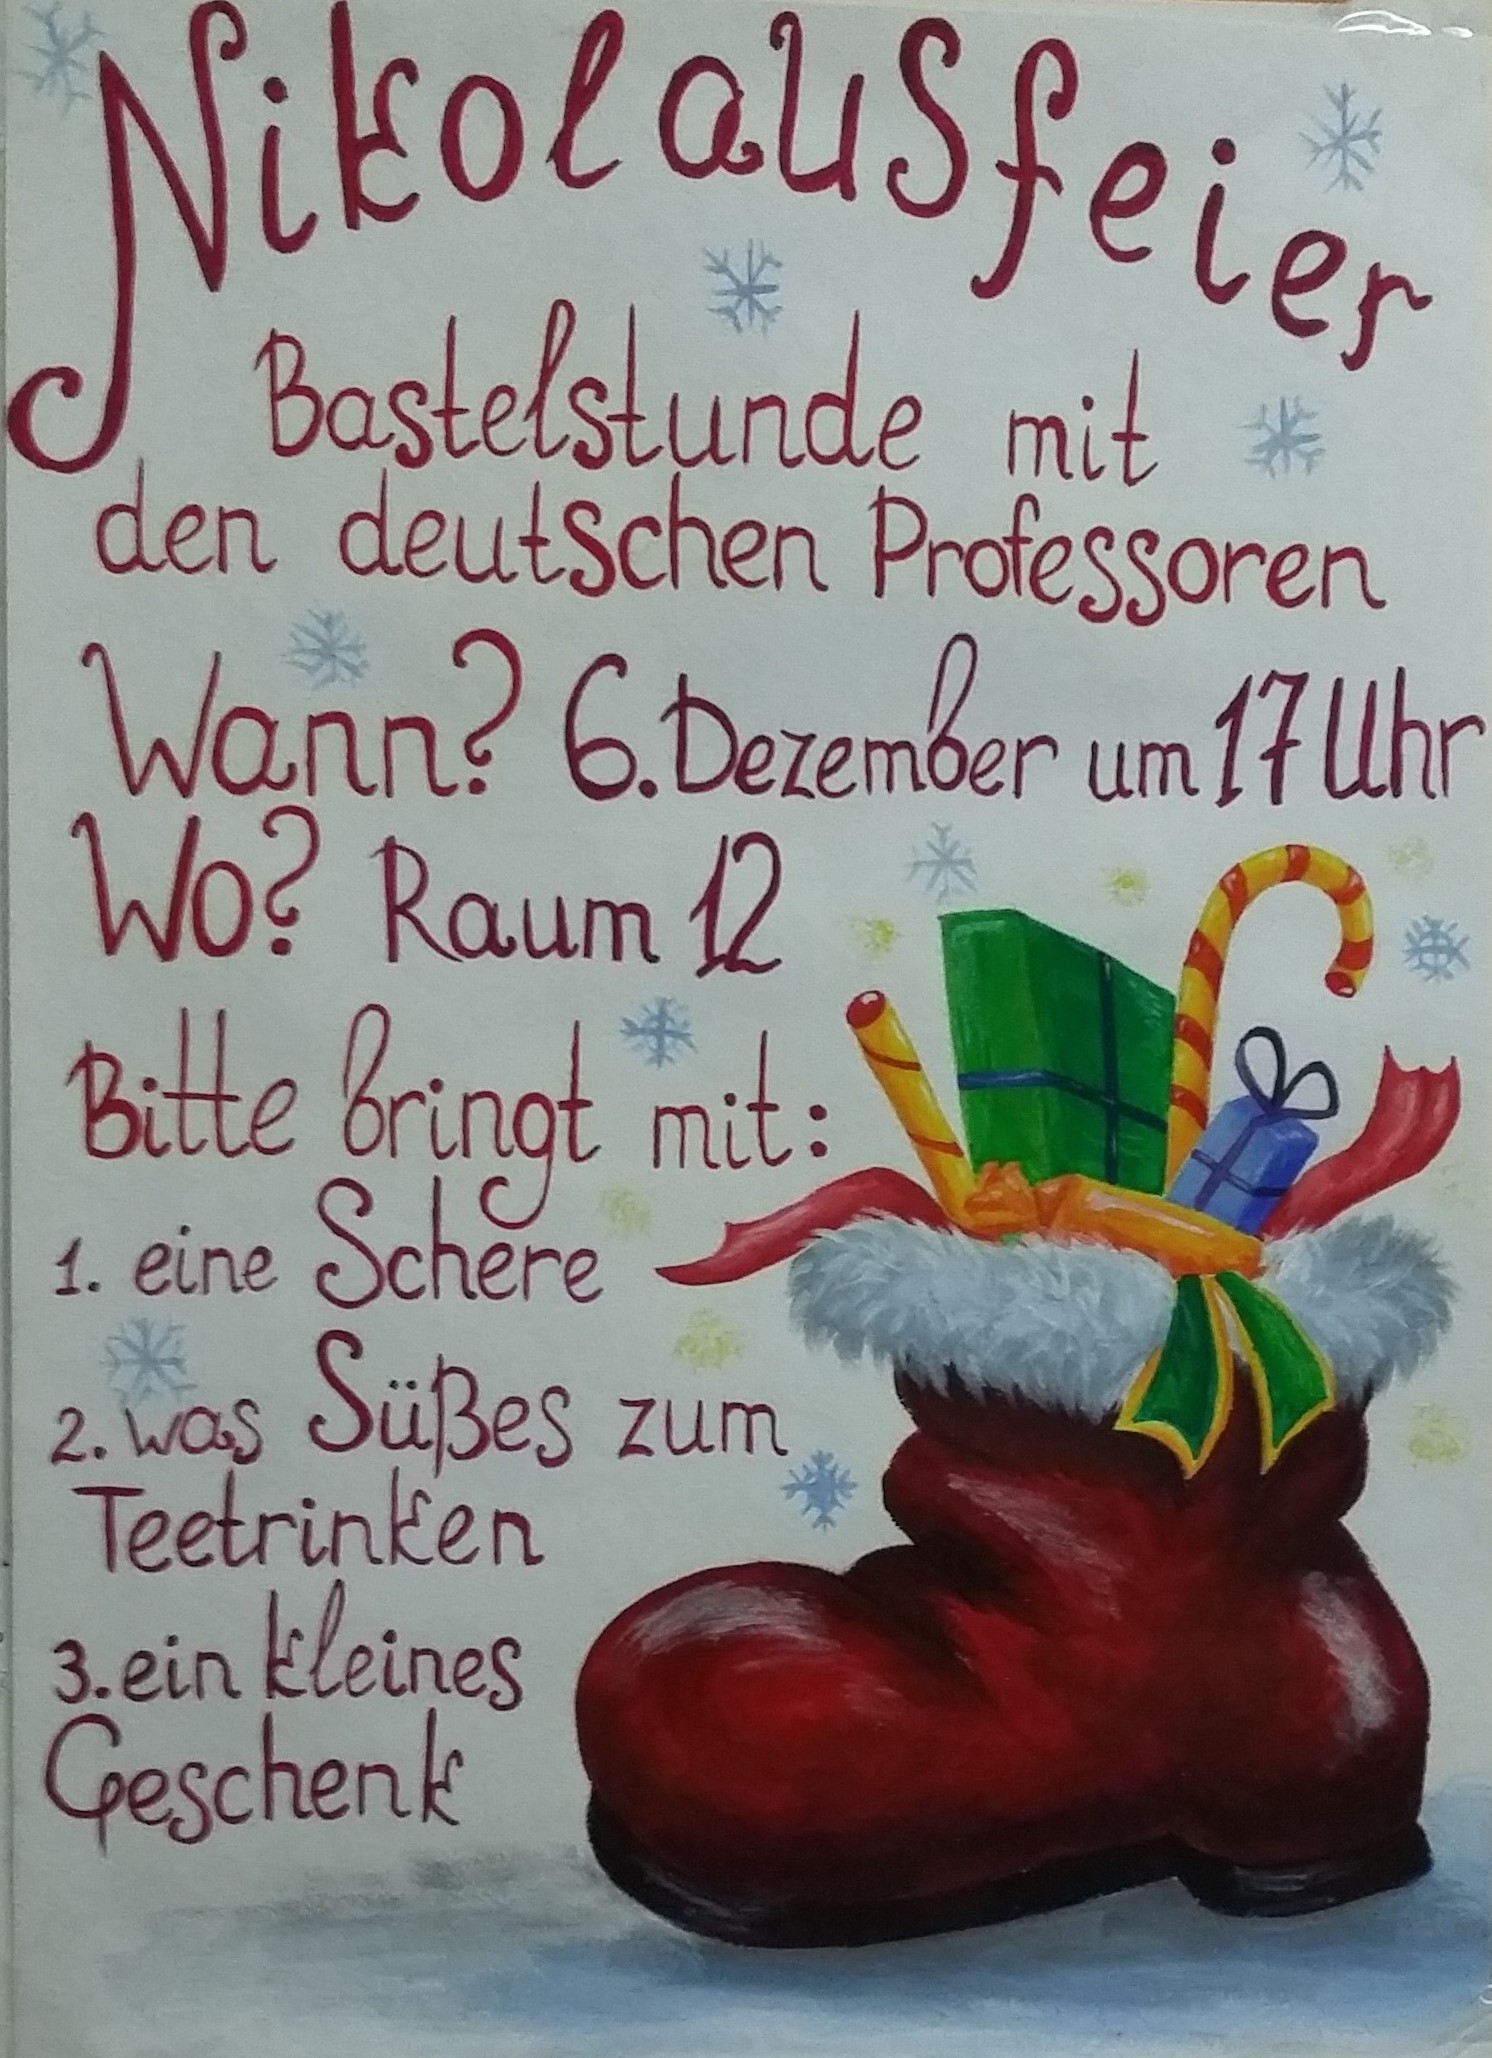 Nikolausfeier
Bastelstunde mit
den deutschen Professoren
Wann? 6. Dezember um 17 Uhr
Wo? Raum 12
Bitte bringt mit:
1. eine Schere
2. was Süßes zum
Teetrinken
3. ein kleines
Geschenk